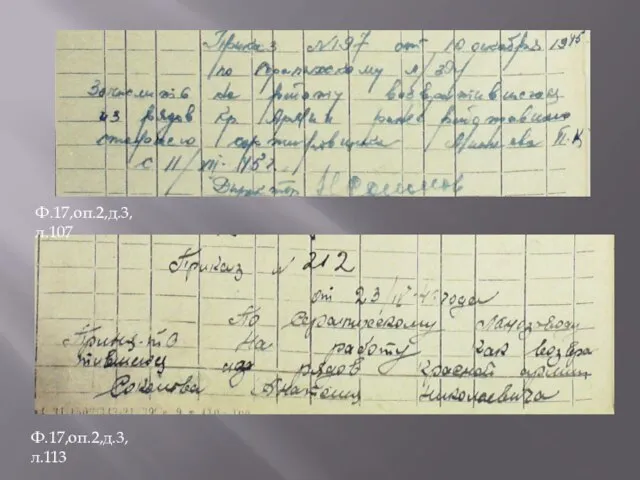 Приказ №197 от 10 декабря 1945
по Сарапульскому л/зду
Зачислить на работу возвратившегося
из рядов Кр Армии ранее работавшего
старшего сортировщика П.К
с 11/XII-45г.
Директор
Ф.17,оп.2,д.3,
л.107
Приказ № 212
от 23/IV-45 года
По Сарапульскому
Принять на работу как возвра
тившегося из рядов Красной армии
Соколова Анатолия Николаевича
Ф.17,оп.2,д.3,
л.113